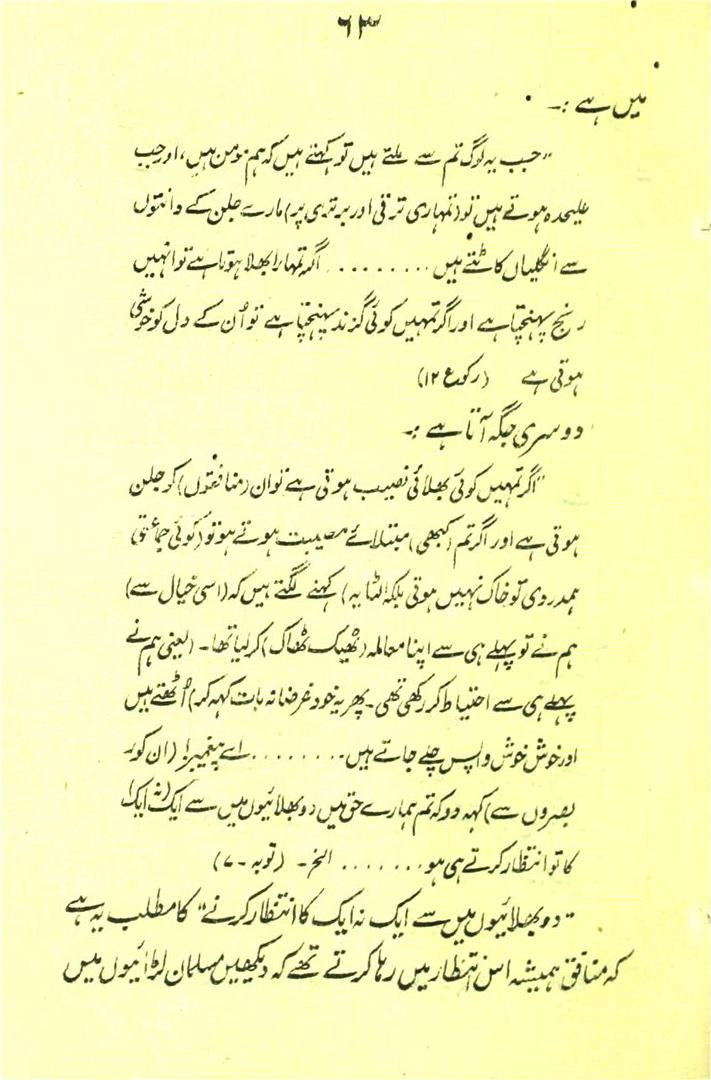 ۶۳
میں ہے :۔
"جب یہ لوگ تم سے ملتے ہیں تو کہتے ہیں کہ ہم مومن ہیں، اور جب
علیحدہ ہوتے ہیں تو (تمہاری ترقی اور برتری پر) مارے جلن کے دانتوں
سے انگلیاں کاٹتے ہیں ........ اگر تمہارا بھلا ہوتا ہے تو انہیں
رنج پہنچتا ہے اور اگر تمہیں کوئی گزند پہنچتا ہے تو اُن کے دل کو خوشی
ہوتی ہے (رکوع ۱۲)
دوسری جگہ آتا ہے :۔
"اگر تمہیں کوئی بھلائی نصیب ہوتی ہے تو ان (منافقوں) کو جلن
ہوتی ہے اور اگر تم (کبھی) مبتلائے مصیبت ہوتے ہو تو (کوئی جماعتی)
ہمدردی تو خاک نہیں ہوتی بلکہ الٹا یہ) کہنے لگتے ہیں کہ (اسی خیال سے)
ہم نے تو پہلے ہی سے اپنا معاملہ (ٹھیک ٹھاک) کر لیا تھا۔ (یعنی ہم نے
پہلے ہی سے احتیاط کر رکھی تھی۔ پھر یہ خود غرضانہ بات کہہ کر) اُٹھتے ہیں
اور خوش خوش واپس چلے جاتے ہیں۔ ....... اے پیغمبر! (ان کور
بصروں سے) کہہ دو کہ تم ہمارے حق میں دو بھلائیوں میں سے ایک (نہ ایک)
کا تو انتظار کرتے ہی ہو ....... الخ۔ (توبہ ۔ ۷)
"دو بھلائیوں میں سے ایک نہ ایک کا انتظار کرنے" کا مطلب یہ ہے
کہ منافق ہمیشہ اس انتظار میں رہا کرتے تھے کہ دیکھیں مسلمان لڑائیوں میں